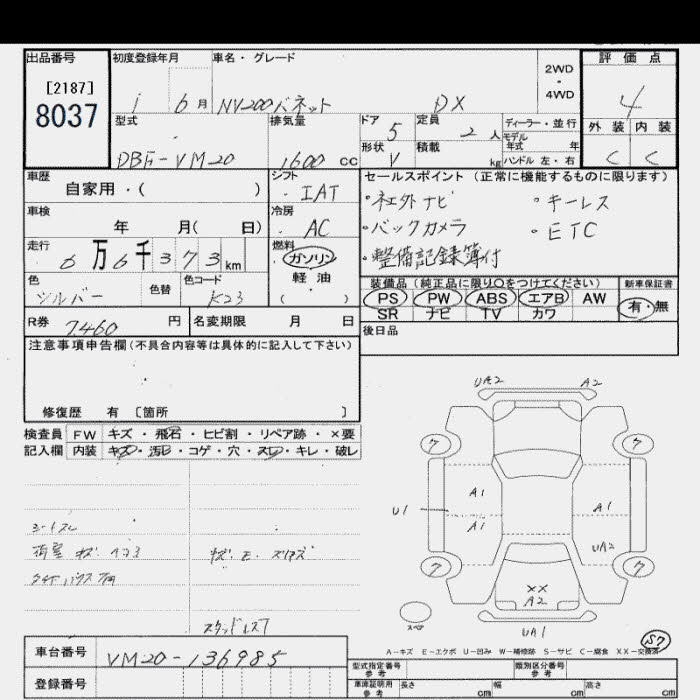 出品番号 初度登録年月 車名・グレード 2WD・4WD 評価点
[2187]
8037
6月 NV200バネット DX 4
型式 排気量 ドア 5 定員 2人 ディーラー・並行 外装 内装
モデル年式 年
DBF-VM20 1600 cc 形状 V 積載 kg ハンドル 左・右 C C
車歴 シフト セールスポイント (正常に機能するものに限ります)
自家用・( ) IAT
・社外ナビ ・キーレス
車検 冷房
年 月( 日) AC ・バックカメラ ・ETC
走行 燃料
6万6千373km ガソリン ・整備記録簿付
軽油
色 色替 色コード ( )
シルバー K23
装備品 (純正品に限り○をつけてください) 新車保証書
PS PW ABS エアB AW 有・無
SR ナビ TV カワ
R券 7,460 円 名変期限 月 日
後日品
注意事項申告欄(不具合内容等は具体的に記入して下さい)
修復歴 有 [箇所 ]
検査員 FW キズ・飛石・ヒビ割・リペア跡・×要
記入欄 内装 キズ・汚レ・コゲ・穴・スレ・キレ・破レ
UA2 A2
ワ ワ
A1 A1
U1 A1
UA2
ワ ワ
XX
A2
スペア
UA1
シートスレ
荷室 キズ
スタッドレス7
S7
A-キズ E-エクボ U-凹み W-補修跡 S-サビ C-腐食 XX-交換済
車台番号 VM20-136985
型式指定番号 参考 類別区分番号 参考
登録番号
車庫証明用 参考 長さ cm 幅 cm 高さ cm